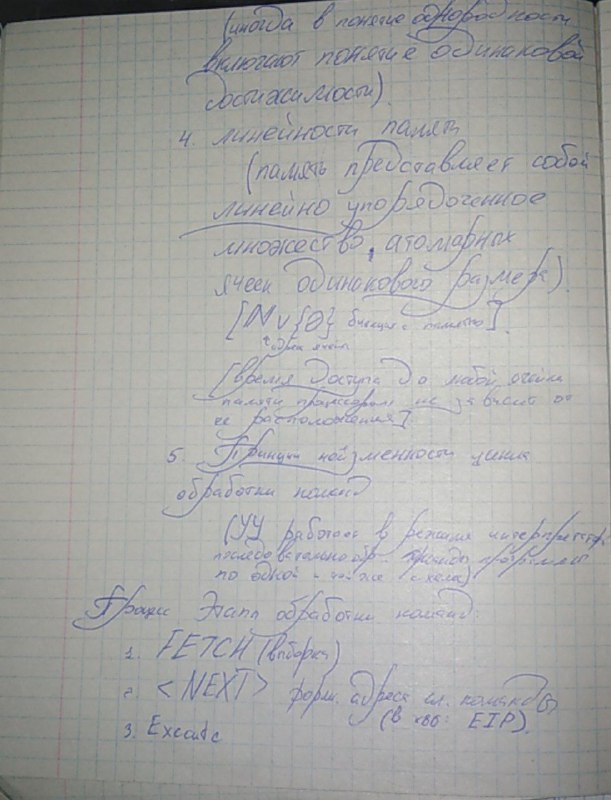 (иногда в понятие однородности
включают понятие одинаковой
достижимости).
4. линейности памяти
(память представляет собой
линейно упорядоченное
множество атомарных
ячеек одинакового размера)
[N ∪ {0} биекция с памятью].
адрес ячейки
[время доступа до любой ячейки
памяти процессором не зависит от
её расположения].
5. Принцип неизменности цикла
обработки команд
(УУ работает в режиме
последовательно
по одной и той же схеме)
Этапы обработки команд:
1. FETCH (выборка)
2. <NEXT> форм. адреса сл. команды
EIP).
3. Execute